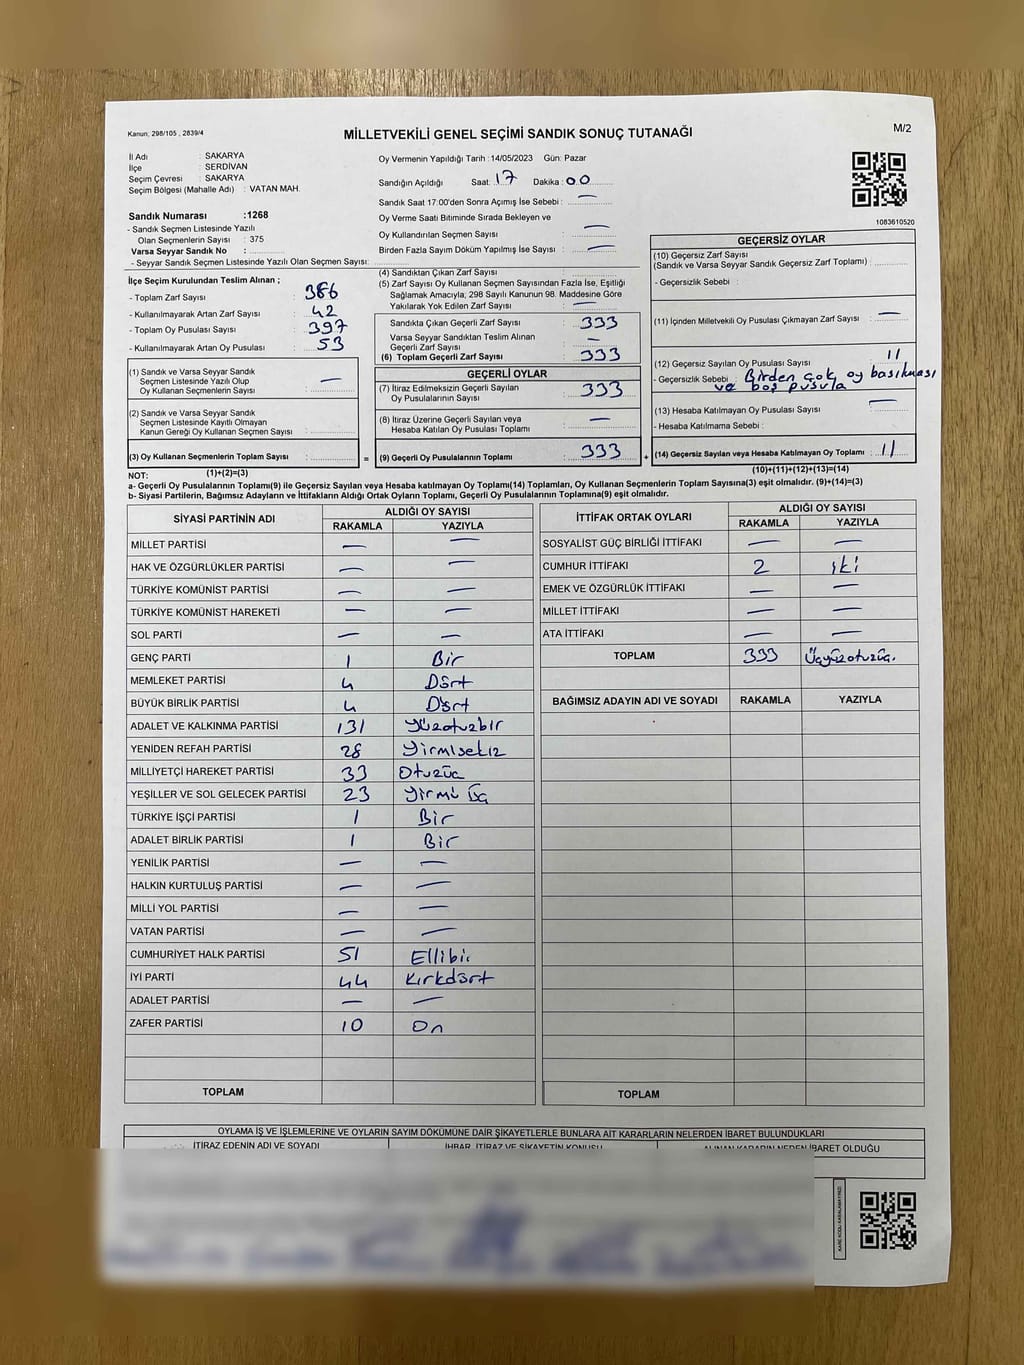 Kanun; 298/105 , 2839/4
MİLLETVEKİLİ GENEL SEÇİMİ SANDIK SONUÇ TUTANAĞI
M/2
İl Adı : SAKARYA
İlçe : SERDİVAN
Seçim Çevresi : SAKARYA
Seçim Bölgesi (Mahalle Adı) : VATAN MAH.
Sandık Numarası :1268
- Sandık Seçmen Listesinde Yazılı
Olan Seçmenlerin Sayısı : 375
Varsa Seyyar Sandık No :
- Seyyar Sandık Seçmen Listesinde Yazılı Olan Seçmen Sayısı:
Oy Vermenin Yapıldığı Tarih : 14/05/2023 Gün: Pazar
Sandığın Açıldığı Saat: 17 Dakika : 00
Sandık Saat 17:00'den Sonra Açımış İse Sebebi : —
Oy Verme Saati Bitiminde Sırada Bekleyen ve
Oy Kullandırılan Seçmen Sayısı : —
Birden Fazla Sayım Döküm Yapılmış İse Sayısı : —
1083610520
İlçe Seçim Kurulundan Teslim Alınan ;
- Toplam Zarf Sayısı : 386
- Kullanılmayarak Artan Zarf Sayısı : 42
- Toplam Oy Pusulası Sayısı : 397
- Kullanılmayarak Artan Oy Pusulası : 53
(1) Sandık ve Varsa Seyyar Sandık
Seçmen Listesinde Yazılı Olup
Oy Kullanan Seçmenlerin Sayısı : —
(2) Sandık ve Varsa Seyyar Sandık
Seçmen Listesinde Kayıtlı Olmayan
Kanun Gereği Oy Kullanan Seçmen Sayısı :
(3) Oy Kullanan Seçmenlerin Toplam Sayısı :
(1)+(2)=(3)
(4) Sandıktan Çıkan Zarf Sayısı :
(5) Zarf Sayısı Oy Kullanan Seçmen Sayısından Fazla İse, Eşitliği
Sağlamak Amacıyla; 298 Sayılı Kanunun 98. Maddesine Göre
Yakılarak Yok Edilen Zarf Sayısı : —
Sandıkta Çıkan Geçerli Zarf Sayısı : 333
Varsa Seyyar Sandıktan Teslim Alınan
Geçerli Zarf Sayısı : —
(6) Toplam Geçerli Zarf Sayısı : 333
GEÇERLİ OYLAR
(7) İtiraz Edilmeksizin Geçerli Sayılan
Oy Pusulalarının Sayısı : 333
(8) İtiraz Üzerine Geçerli Sayılan veya
Hesaba Katılan Oy Pusulası Toplamı : —
= (9) Geçerli Oy Pusulalarının Toplamı : 333
GEÇERSİZ OYLAR
(10) Geçersiz Zarf Sayısı
(Sandık ve Varsa Seyyar Sandık Geçersiz Zarf Toplamı) :
- Geçersizlik Sebebi :
(11) İçinden Milletvekili Oy Pusulası Çıkmayan Zarf Sayısı : —
(12) Geçersiz Sayılan Oy Pusulası Sayısı : 11
- Geçersizlik Sebebi : Birden çok oy basılması
ve boş pusula
(13) Hesaba Katılmayan Oy Pusulası Sayısı : —
- Hesaba Katılmama Sebebi :
+ (14) Geçersiz Sayılan veya Hesaba Katılmayan Oy Toplamı : 11
(10)+(11)+(12)+(13)=(14)
NOT:
a- Geçerli Oy Pusulalarının Toplamı(9) ile Geçersiz Sayılan veya Hesaba Katılmayan Oy Toplamı(14) Toplamları, Oy Kullanan Seçmenlerin Toplam Sayısına(3) eşit olmalıdır. (9)+(14)=(3)
b- Siyasi Partilerin, Bağımsız Adayların ve İttifakların Aldığı Ortak Oyların Toplamı, Geçerli Oy Pusulalarının Toplamına(9) eşit olmalıdır.
SİYASİ PARTİNİN ADI ALDIĞI OY SAYISI
RAKAMLA YAZIYLA
MİLLET PARTİSİ — —
HAK VE ÖZGÜRLÜKLER PARTİSİ — —
TÜRKİYE KOMÜNİST PARTİSİ — —
TÜRKİYE KOMÜNİST HAREKETİ — —
SOL PARTİ — —
GENÇ PARTİ 1 Bir
MEMLEKET PARTİSİ 4 Dört
BÜYÜK BİRLİK PARTİSİ 4 Dört
ADALET VE KALKINMA PARTİSİ 131 Yüzotuzbir
YENİDEN REFAH PARTİSİ 28 Yirmisekiz
MİLLİYETÇİ HAREKET PARTİSİ 33 Otuzüç
YEŞİLLER VE SOL GELECEK PARTİSİ 23 Yirmi üç
TÜRKİYE İŞÇİ PARTİSİ 1 Bir
ADALET BİRLİK PARTİSİ 1 Bir
YENİLİK PARTİSİ — —
HALKIN KURTULUŞ PARTİSİ — —
MİLLİ YOL PARTİSİ — —
VATAN PARTİSİ — —
CUMHURİYET HALK PARTİSİ 51 Ellibir
İYİ PARTİ 44 Kırkdört
ADALET PARTİSİ — —
ZAFER PARTİSİ 10 On
TOPLAM
İTTİFAK ORTAK OYLARI ALDIĞI OY SAYISI
RAKAMLA YAZIYLA
SOSYALİST GÜÇ BİRLİĞİ İTTİFAKI — —
CUMHUR İTTİFAKI 2 iki
EMEK VE ÖZGÜRLÜK İTTİFAKI — —
MİLLET İTTİFAKI — —
ATA İTTİFAKI — —
TOPLAM 333 Üçyüzotuzüç.
BAĞIMSIZ ADAYIN ADI VE SOYADI RAKAMLA YAZIYLA
TOPLAM
OYLAMA İŞ VE İŞLEMLERİNE VE OYLARIN SAYIM DÖKÜMÜNE DAİR ŞİKAYETLERLE BUNLARA AİT KARARLARIN NELERDEN İBARET BULUNDUKLARI
İTİRAZ EDENİN ADI VE SOYADI İHBAR, İTİRAZ VE ŞİKAYETİN KONUSU ALINAN KARARIN NEDEN İBARET OLDUĞU